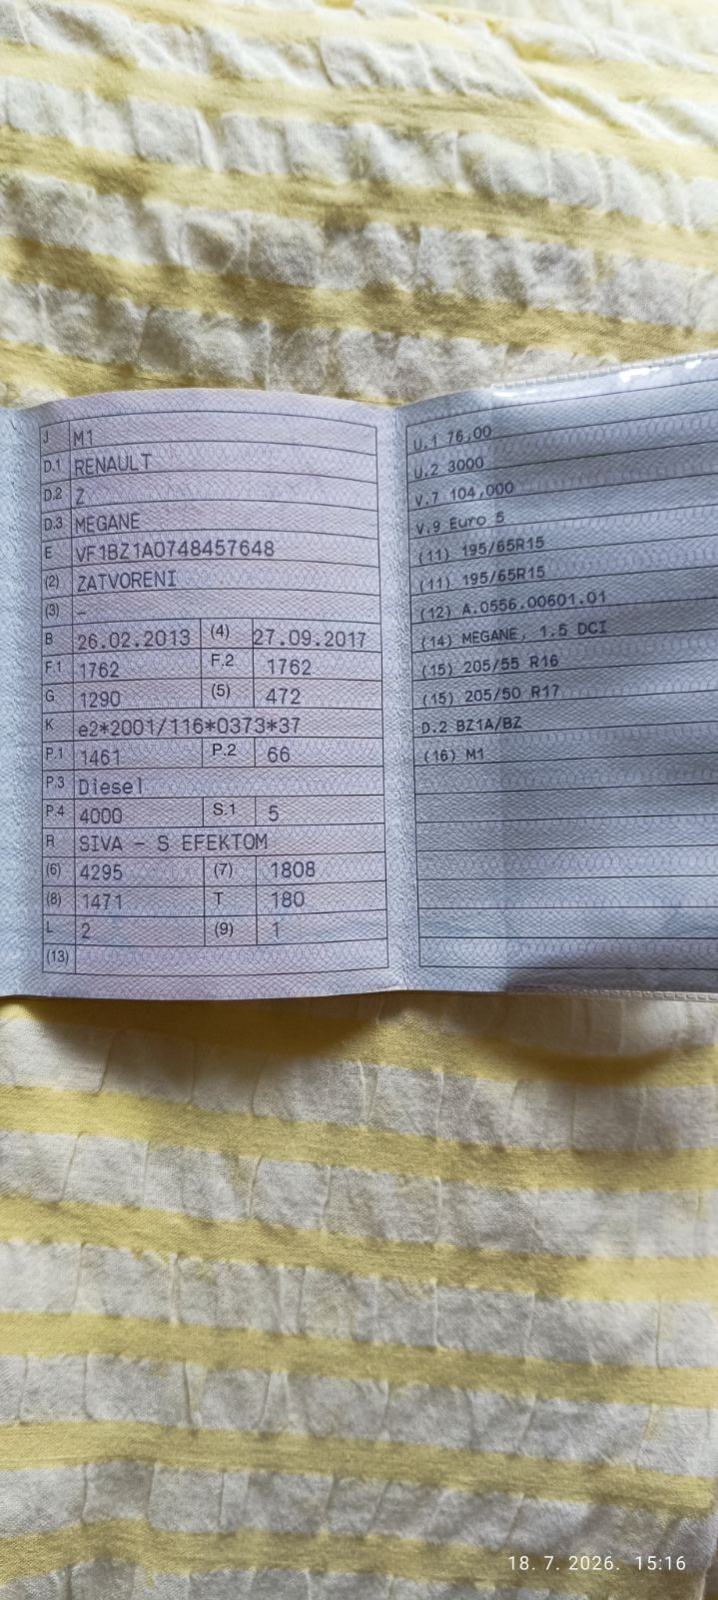 J M1
D.1 RENAULT
D.2 Z
D.3 MEGANE
E VF1BZ1A0748457648
(2) ZATVORENI
(3) –
B 26.02.2013 (4) 27.09.2017
F.1 1762 F.2 1762
G 1290 (5) 472
K e2*2001/116*0373*37
P.1 1461 P.2 66
P.3 Diesel
P.4 4000 S.1 5
R SIVA – S EFEKTOM
(6) 4295 (7) 1808
(8) 1471 T 180
L 2 (9) 1
(13)
U.1 76,00
U.2 3000
V.7 104,000
V.9 Euro 5
(11) 195/65R15
(11) 195/65R15
(12) A.0556.00601.01
(14) MEGANE, 1.5 DCI
(15) 205/55 R16
(15) 205/50 R17
D.2 BZ1A/BZ
(16) M1
18. 7. 2026. 15:16